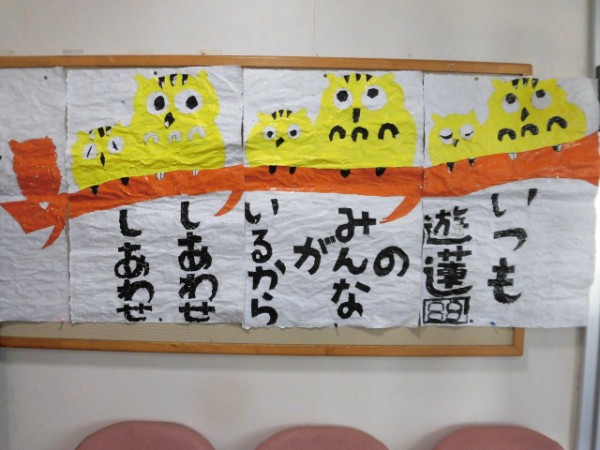 いつも
遊蓮
の
みんな
が
いるから
しあわせ
しあわせ